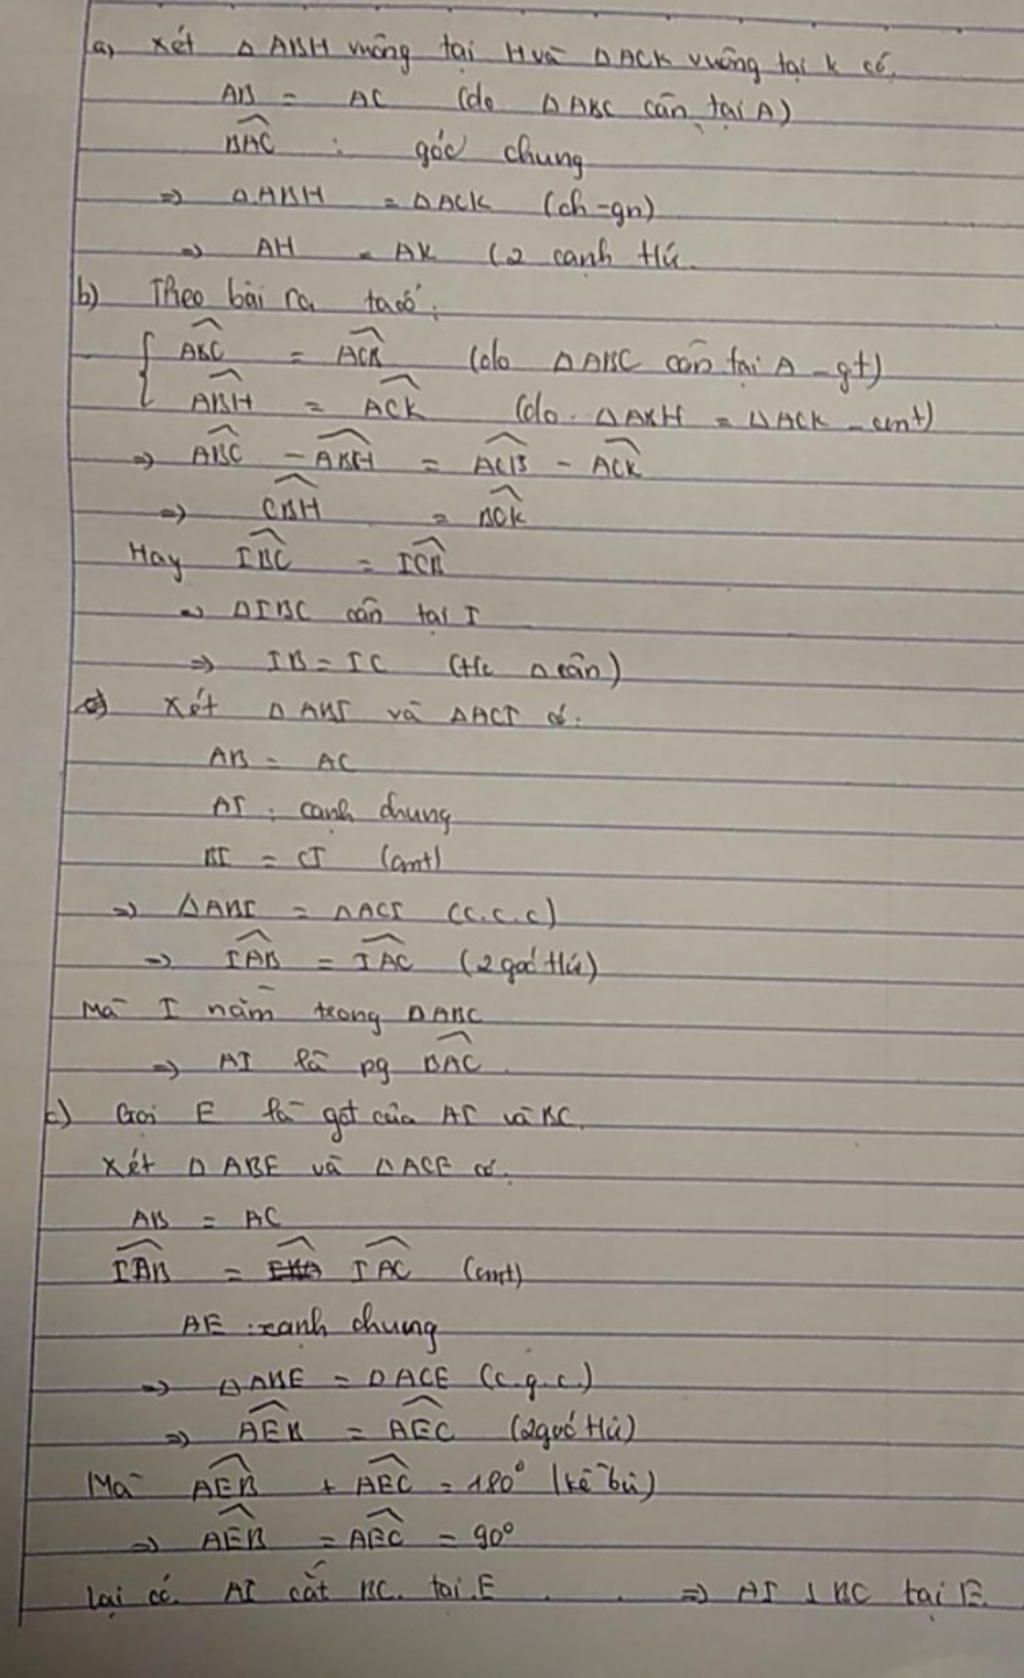 a) Xét ΔABH vuông tại H và ΔACK vuông tại K có.
AB = AC (do ΔABC cân tại A)
\widehat{BAC} : góc chung
=> ΔABH = ΔACK (ch-gn)
=> AH = AK (2 cạnh tứ.
b) Theo bài ra ta có:
{ \widehat{ABC} = \widehat{ACB} (do ΔABC cân tại A - gt)
\widehat{ABH} = \widehat{ACK} (do ΔABH = ΔACK - cmt)
=> \widehat{ABC} - \widehat{ABH} = \widehat{ACB} - \widehat{ACK}
=> \widehat{CBH} = \widehat{BCK}
Hay \widehat{IBC} = \widehat{ICB}
=> ΔIBC cân tại I
=> IB = IC (t/c Δ cân)
c) Xét ΔABI và ΔACI có:
AB = AC
AI : cạnh chung
BI = CI (cmt)
=> ΔABI = ΔACI (c.c.c)
=> \widehat{IAB} = \widehat{IAC} (2 góc tứ)
Mà I nằm trong ΔABC
=> AI là pg \widehat{BAC}.
c) Gọi E là gđ của AI và BC.
Xét ΔABE và ΔACE có.
AB = AC
\widehat{IAB} = \widehat{IAC} (cmt)
AE : cạnh chung
=> ΔABE = ΔACE (c.g.c.)
=> \widehat{AEB} = \widehat{AEC} (2 góc tứ)
Mà \widehat{AEB} + \widehat{AEC} = 180° (kề bù)
=> \widehat{AEB} = \widehat{AEC} = 90°
Lại có. AI cắt BC. tại E . . => AI ⊥ BC tại E.